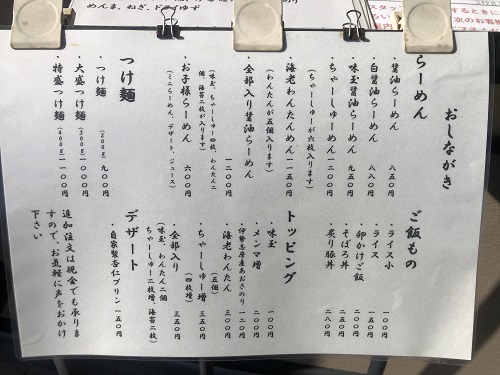 めんま、ねぎ、ドライゆず
おしながき
らーめん
・醤油らーめん 八五〇
・白醤油らーめん 八八〇
・味玉醤油らーめん 九五〇
・ちゃーしゅーめん 一一五〇
(ちゃーしゅーが六枚入ります)
・海老わんたんめん 一一五〇
(わんたんが五個入ります)
・全部入り醤油らーめん 一二〇〇
(味玉、ちゃーしゅー四枚、わんたん二
個、海苔二枚が入ります)
・お子様らーめん 六〇〇
(ミニらーめん、デザート、ジュース)
つけ麺
・つけ麺 (200g) 九〇〇
・大盛つけ麺 (300g) 一〇〇〇
・特盛つけ麺 (400g) 一一〇〇
ご飯もの
・ライス小 一〇〇
・ライス 一五〇
・卵かけご飯 二〇〇
・そぼろ丼 二五〇
・炙り豚丼 二八〇
トッピング
・味玉 一〇〇
・メンマ増 二〇〇
・伊勢志摩産あおさのり 一二〇
・海老わんたん 三〇〇
(五個)
・ちゃーしゅー増 三五〇
(四枚増)
・全部入り 三五〇
(味玉、わんたん二個
ちゃーしゅー二枚増、海苔二枚)
デザート
・自家製杏仁プリン 一五〇
追加注文は現金でも承りま
すので、お気軽に声をおかけ
下さい